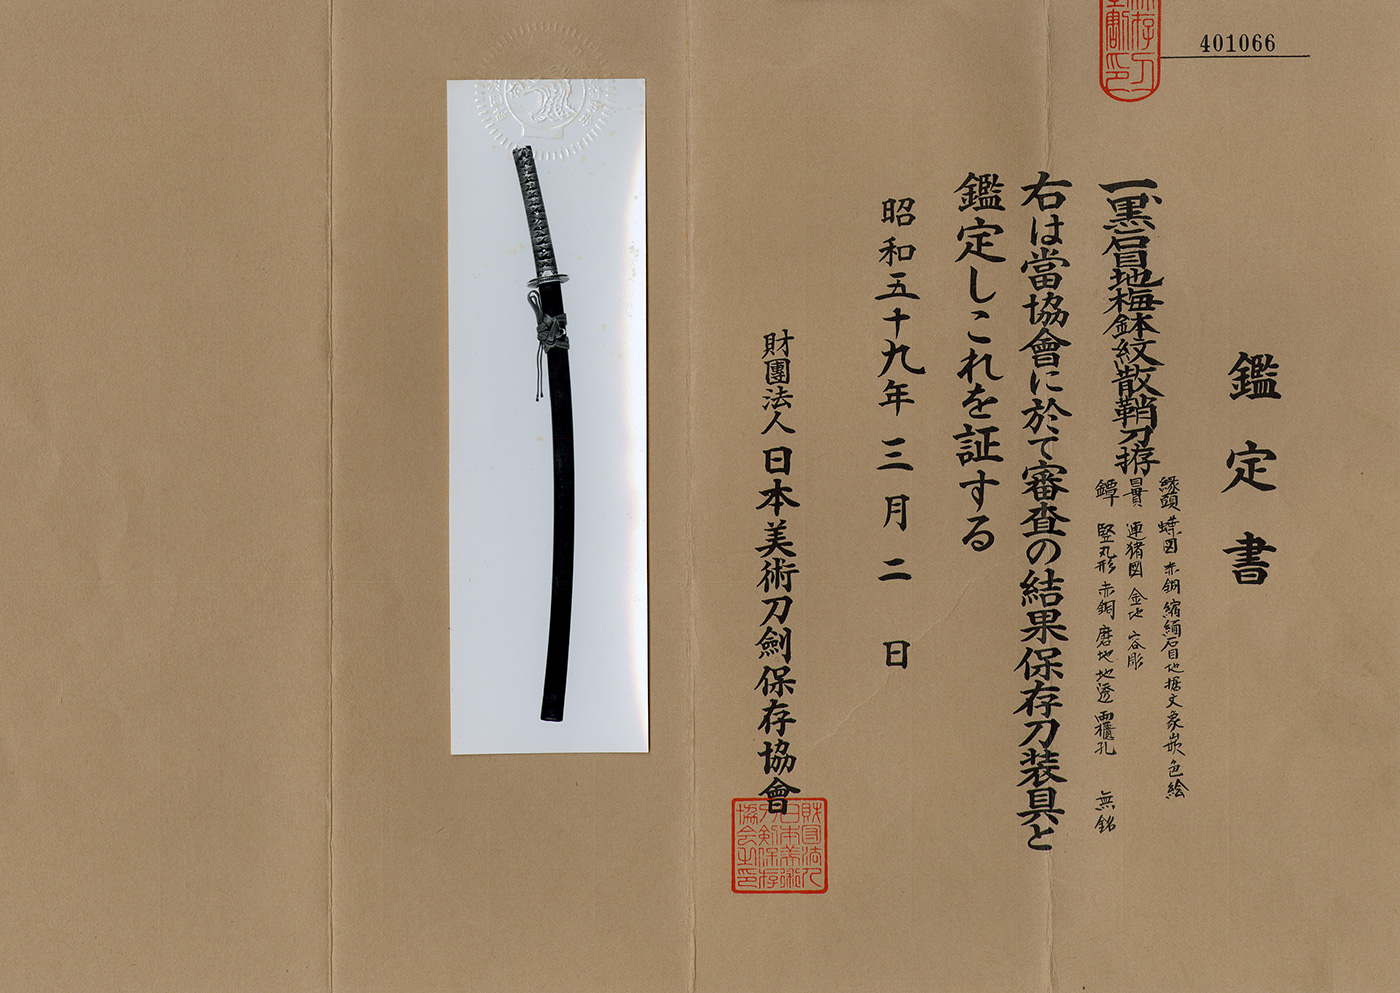 401066
鑑定書
一、黒石目地梅鉢紋散鞘刀拵
縁頭 蝶図 赤銅 縮緬石目地 据文象嵌色絵
目貫 連猪図 金地 容彫
鐔 竪丸形 赤銅磨地 地透 両櫃孔 無銘
右は當協會に於て審査の結果保存刀装具と
鑑定しこれを証する
昭和五十九年三月二日
財團法人 日本美術刀劍保存協會
財団法人
日本美術
刀剣保存
協会之印